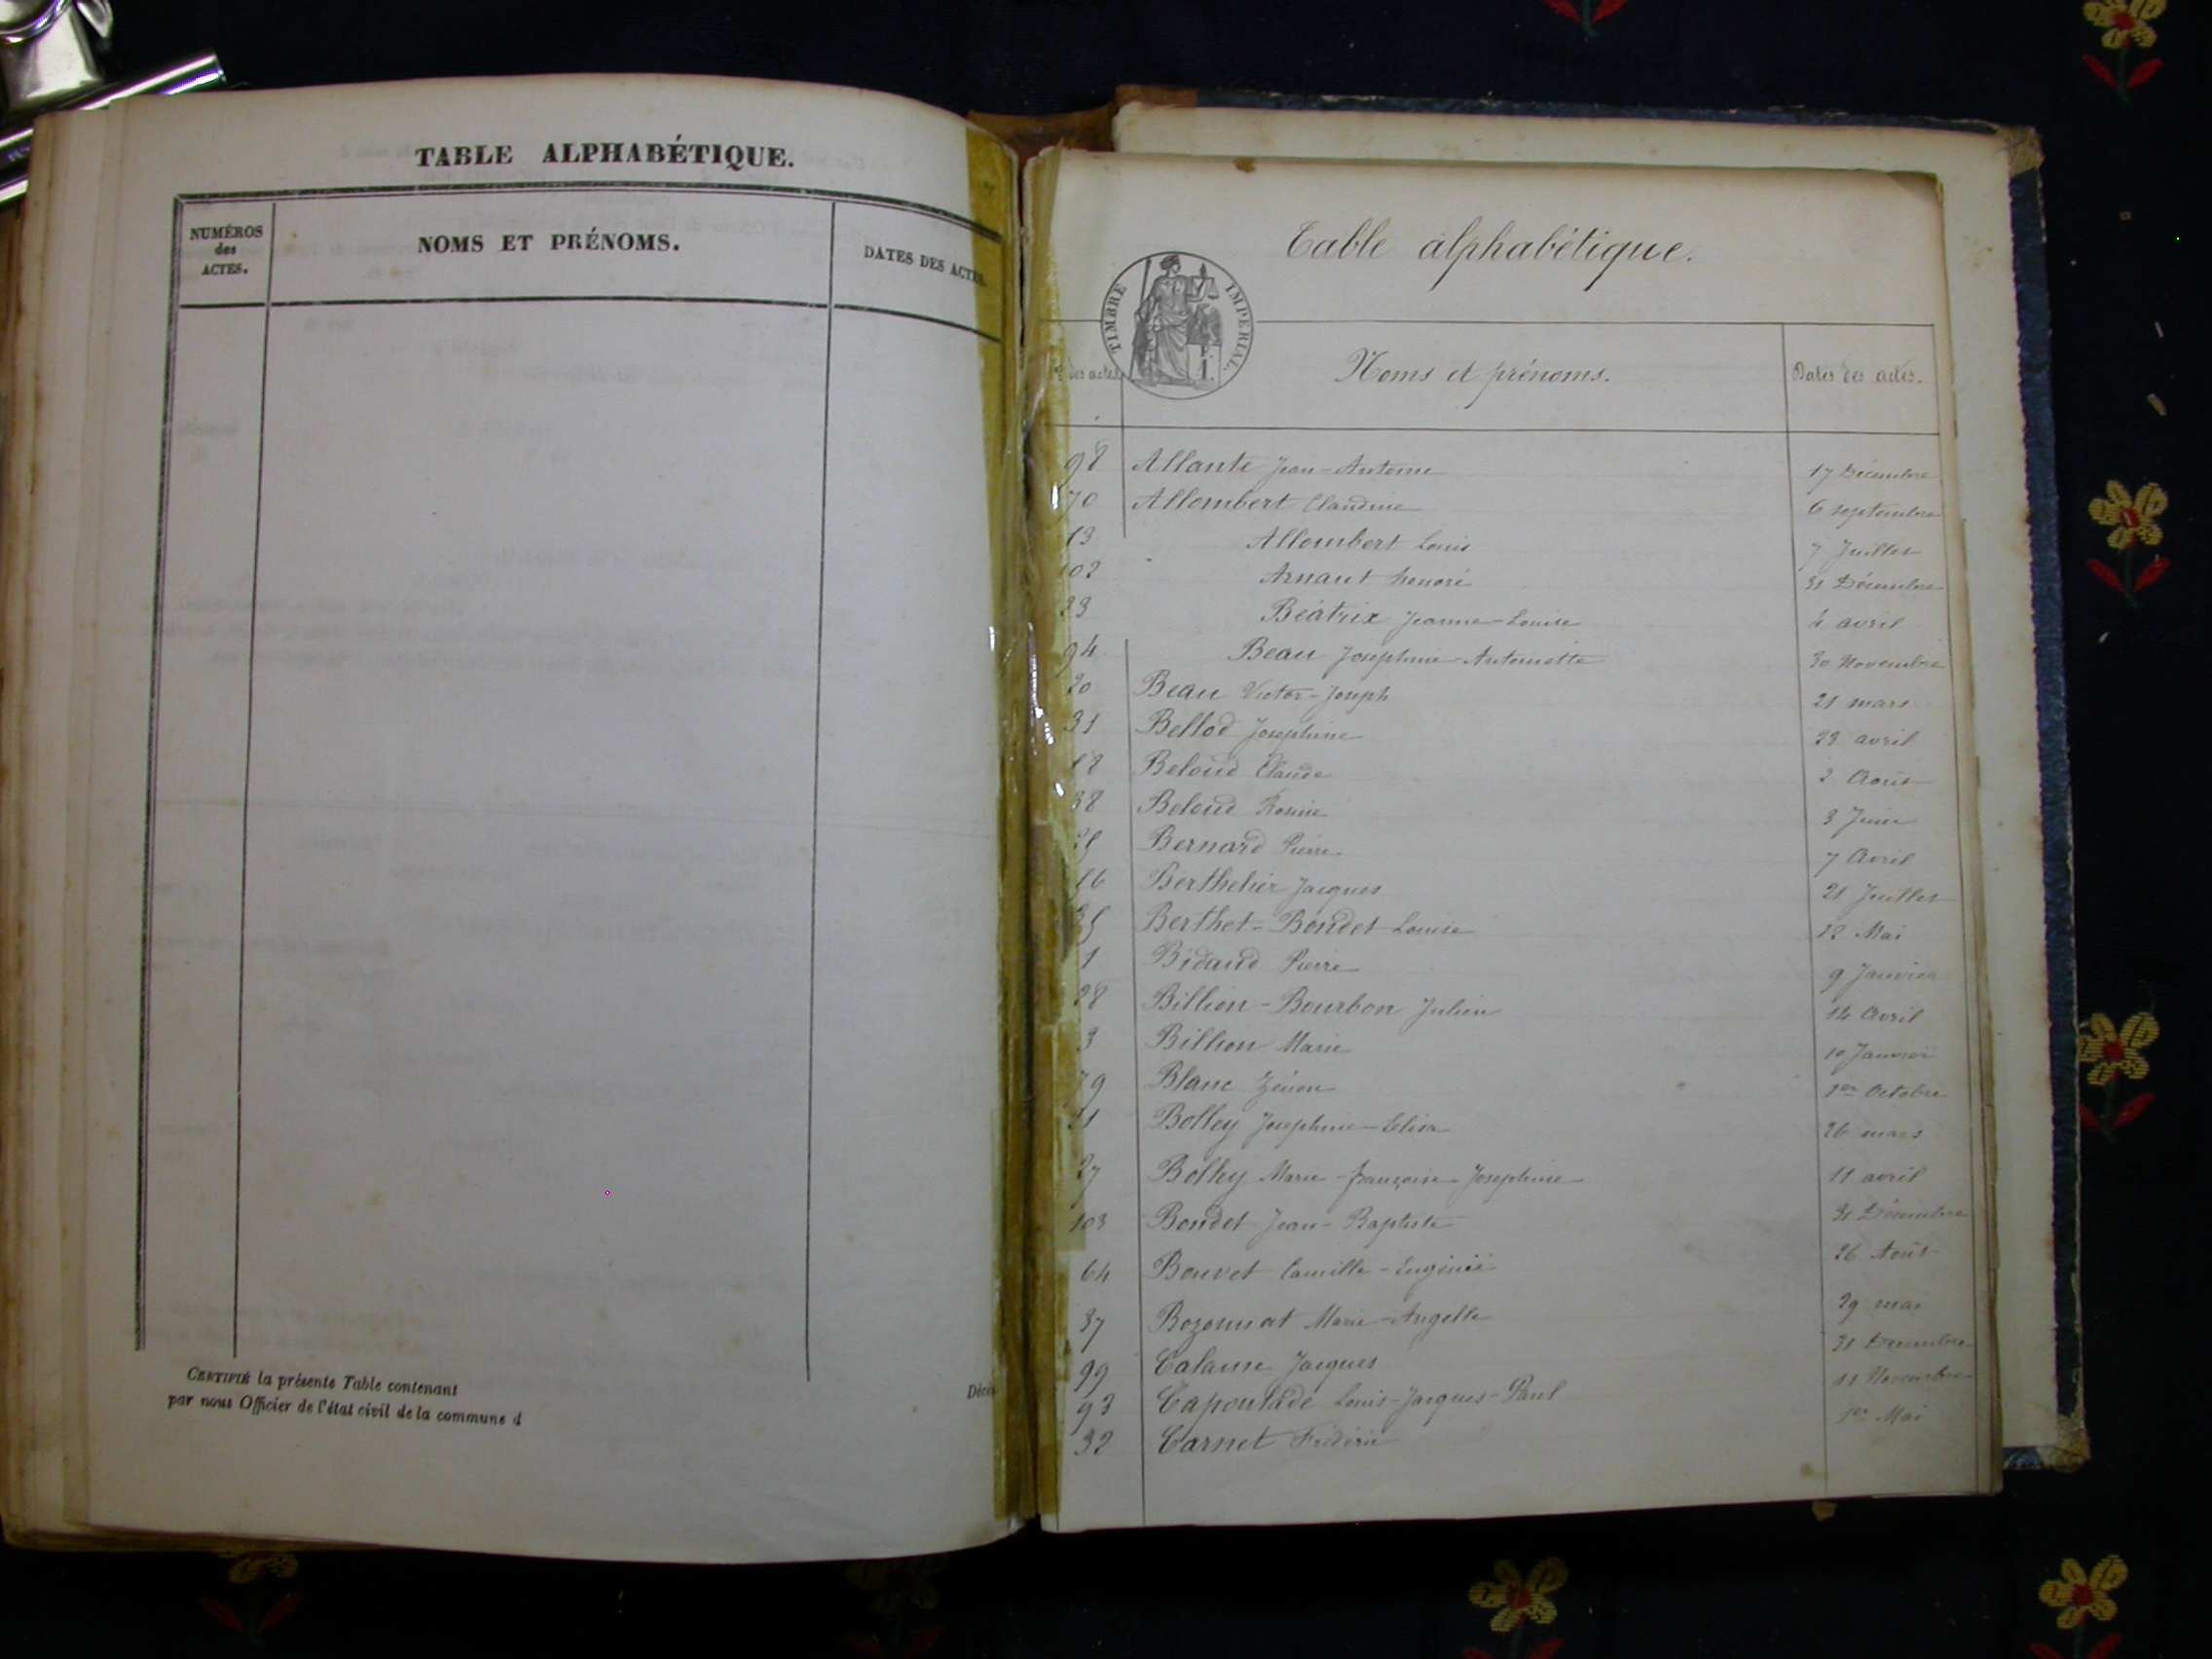 TABLE ALPHABÉTIQUE.
NUMÉROS
des
ACTES.
NOMS ET PRÉNOMS.
DATES DES ACTES.
CERTIFIÉ la présente Table contenant
par nous Officier de l'état civil de la commune d
Table alphabétique.
TIMBRE IMPÉRIAL.
1 F.
des actes
Noms et prénoms.
Dates des actes.
98 Allante Jean-Antoine 17 Décembre
70 Allombert Claudine 6 septembre
Allombert Louis 7 Juillet
102 Arnaut honoré 31 Décembre
23 Béatrix Jeanne-Louise 4 avril
94 Beau Josephine-Antoinette 30 Novembre
20 Beau Victor-Joseph 21 mars
31 Bellod Josephine 23 avril
Beloud Claude 2 Août
38 Beloud Rosine 3 Juin
25 Bernard Pierre 7 Avril
Berthelier Jacques 21 Juillet
35 Berthet-Bondet Louise 12 Mai
1 Bidaud Pierre 9 Janvier
28 Billion-Bourbon Julien 14 Avril
3 Billion Marie 10 Janvier
79 Blanc Zénon 1er Octobre
21 Bolley Josephine-Elisa 26 mars
27 Bolley Marie-Françoise-Josephine 11 avril
103 Bondet Jean-Baptiste 31 Décembre
64 Bouvet Camille-Eugénie 26 Août
37 Bozonnat Marie-Angelle 29 mai
99 Calame Jacques 31 Décembre
93 Capoulade Louis-Jacques-Paul Novembre
32 Carnet Frédéric 1er Mai